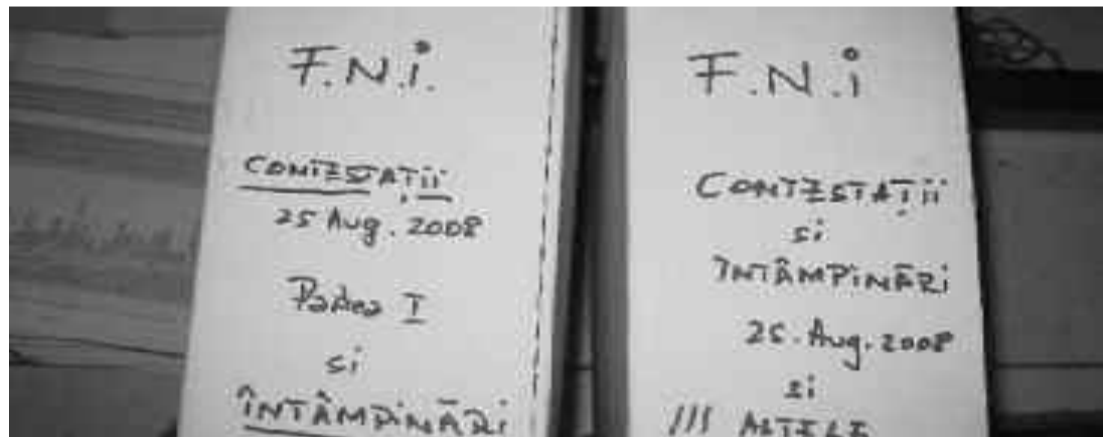 F.N.i.
CONTESTAȚii
25 Aug. 2008
Partea I
si
ÎNTÂMPiNĂRi
F.N.i
CONTESTAȚii
si
ÎNTÂMPiNĂRi
25. Aug. 2008
si
/// ALTELE